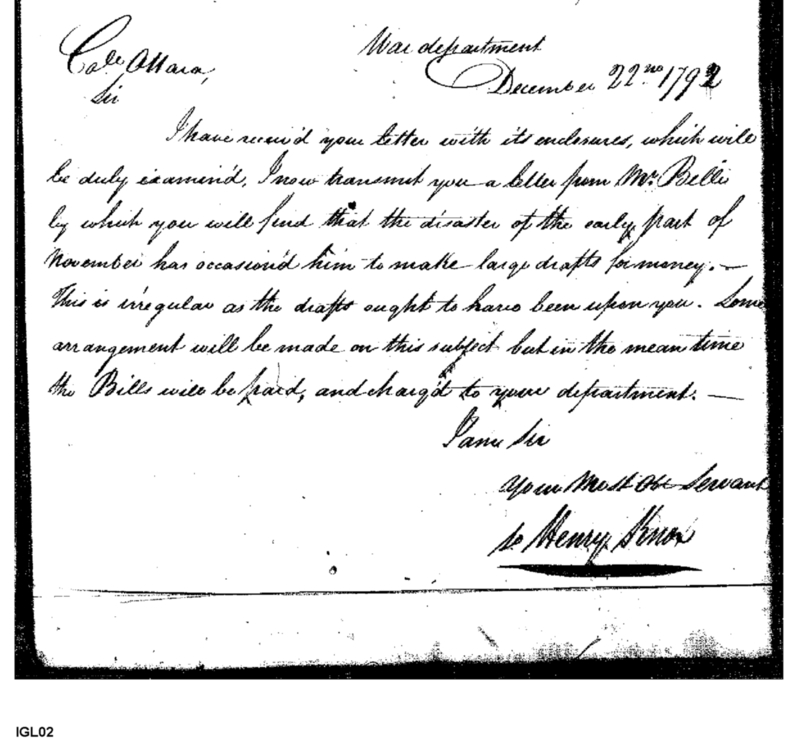 War department
Colo. OHara,
December 22nd 1792
Sir
I have receiv'd your letter with its enclosures, which will
be duly examin'd, I now transmit you a letter from Mr. Belli
by which you will find that the disaster of the early part of
November has occasion'd him to make large drafts for money. —
This is irregular as the drafts ought to have been upon you. Some
arrangement will be made on this subject but in the mean time
the Bills will be paid, and charg'd to your department. —
I am Sir
Your Most Obt Servant
Henry Knox
IGL02